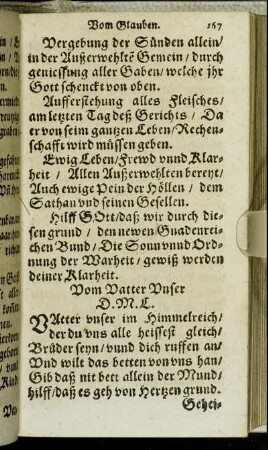 Vom Glauben. 167
Vergebung der Sünden allein/
in der Außerwehltē Gemein/ durch
geniessung aller Gaben/ welche jhr
Gott schenckt von oben.
Aufferstehung alles Fleisches/
am letzten Tag deß Gerichts/ Da
er von seim gantzen Leben/ Rechen-
schafft wird müssen geben.
Ewig Leben/ Frewd vnnd Klar-
heit/ Allen Außerwehlten bereyt/
Auch ewige Pein der Höllen/ dem
Sathan vnd seinen Gesellen.
Hilff Gott/ daß wir durch die-
sen grund/ den newen Gnadenrei-
chen Bund/ Die Sonn vnnd Ord-
nung der Warheit/ gewiß werden
deiner Klarheit.
Vom Vatter Vnser
D. M. L.
VAtter vnser im Himmelreich/
der du vns alle heissest gleich/
Brüder seyn/ vnd dich ruffen an/
Vnd wilt das betten von vns han/
Gib daß nit bett allein der Mund/
hilff/ daß es geh von Hertzen grund.
Gehei-